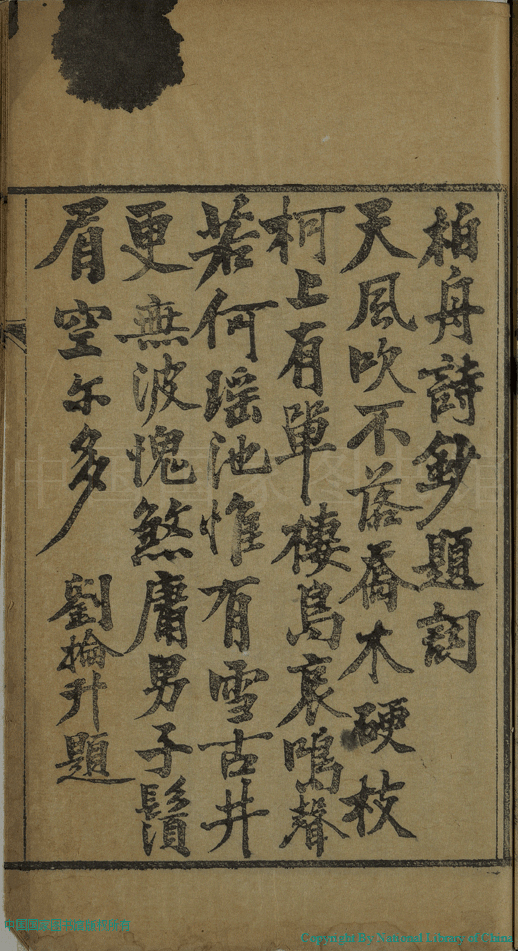 柏舟詩鈔題詞
天風吹不落喬木硬枝
柯上有單棲鳥哀鳴聲
若何瑶池惟有雪古井
更無波愧煞庸男子鬚
眉空尔多
劉掄升題
中国国家图书馆
Copyright By National Library of China